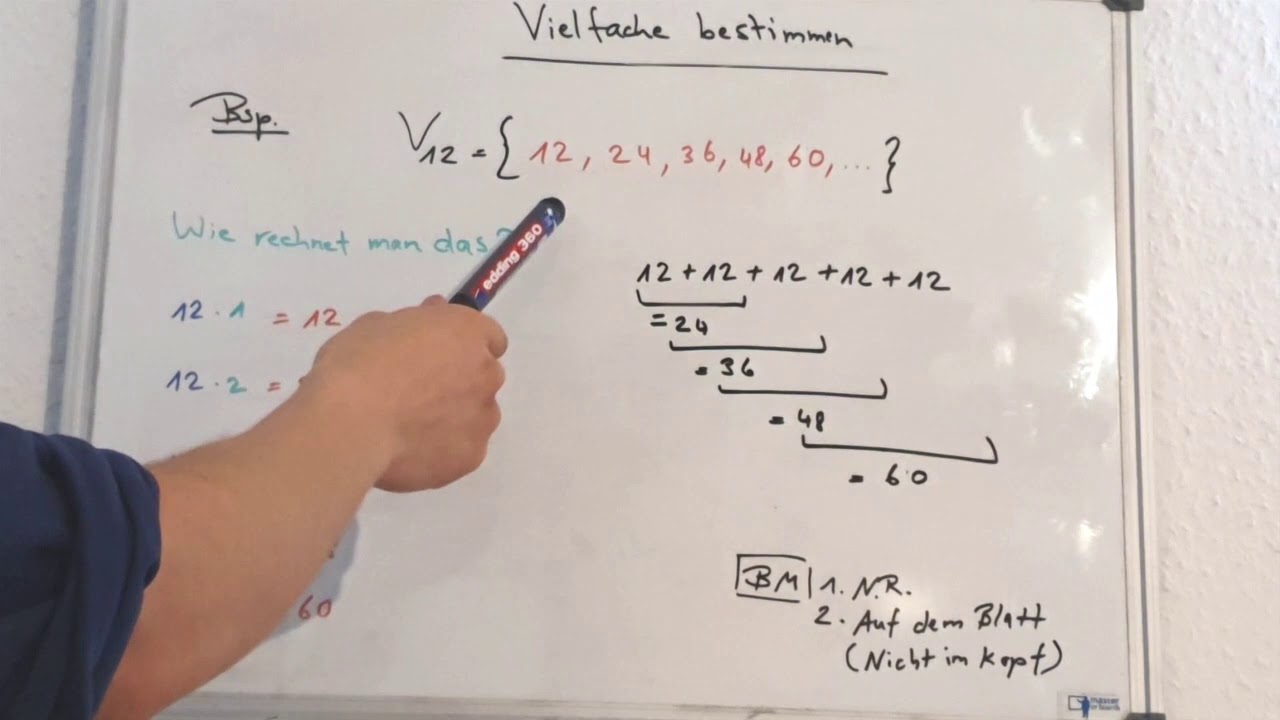 Vielfache bestimmen
Bsp.
V12 = { 12, 24, 36, 48, 60, ... }
Wie rechnet man das?
12 · 1 = 12
12 · 2 =
60
12 + 12 + 12 + 12 + 12
= 24
= 36
= 48
= 60
BM 1. N.R.
2. Auf dem Blatt
(Nicht im Kopf)
edding 360